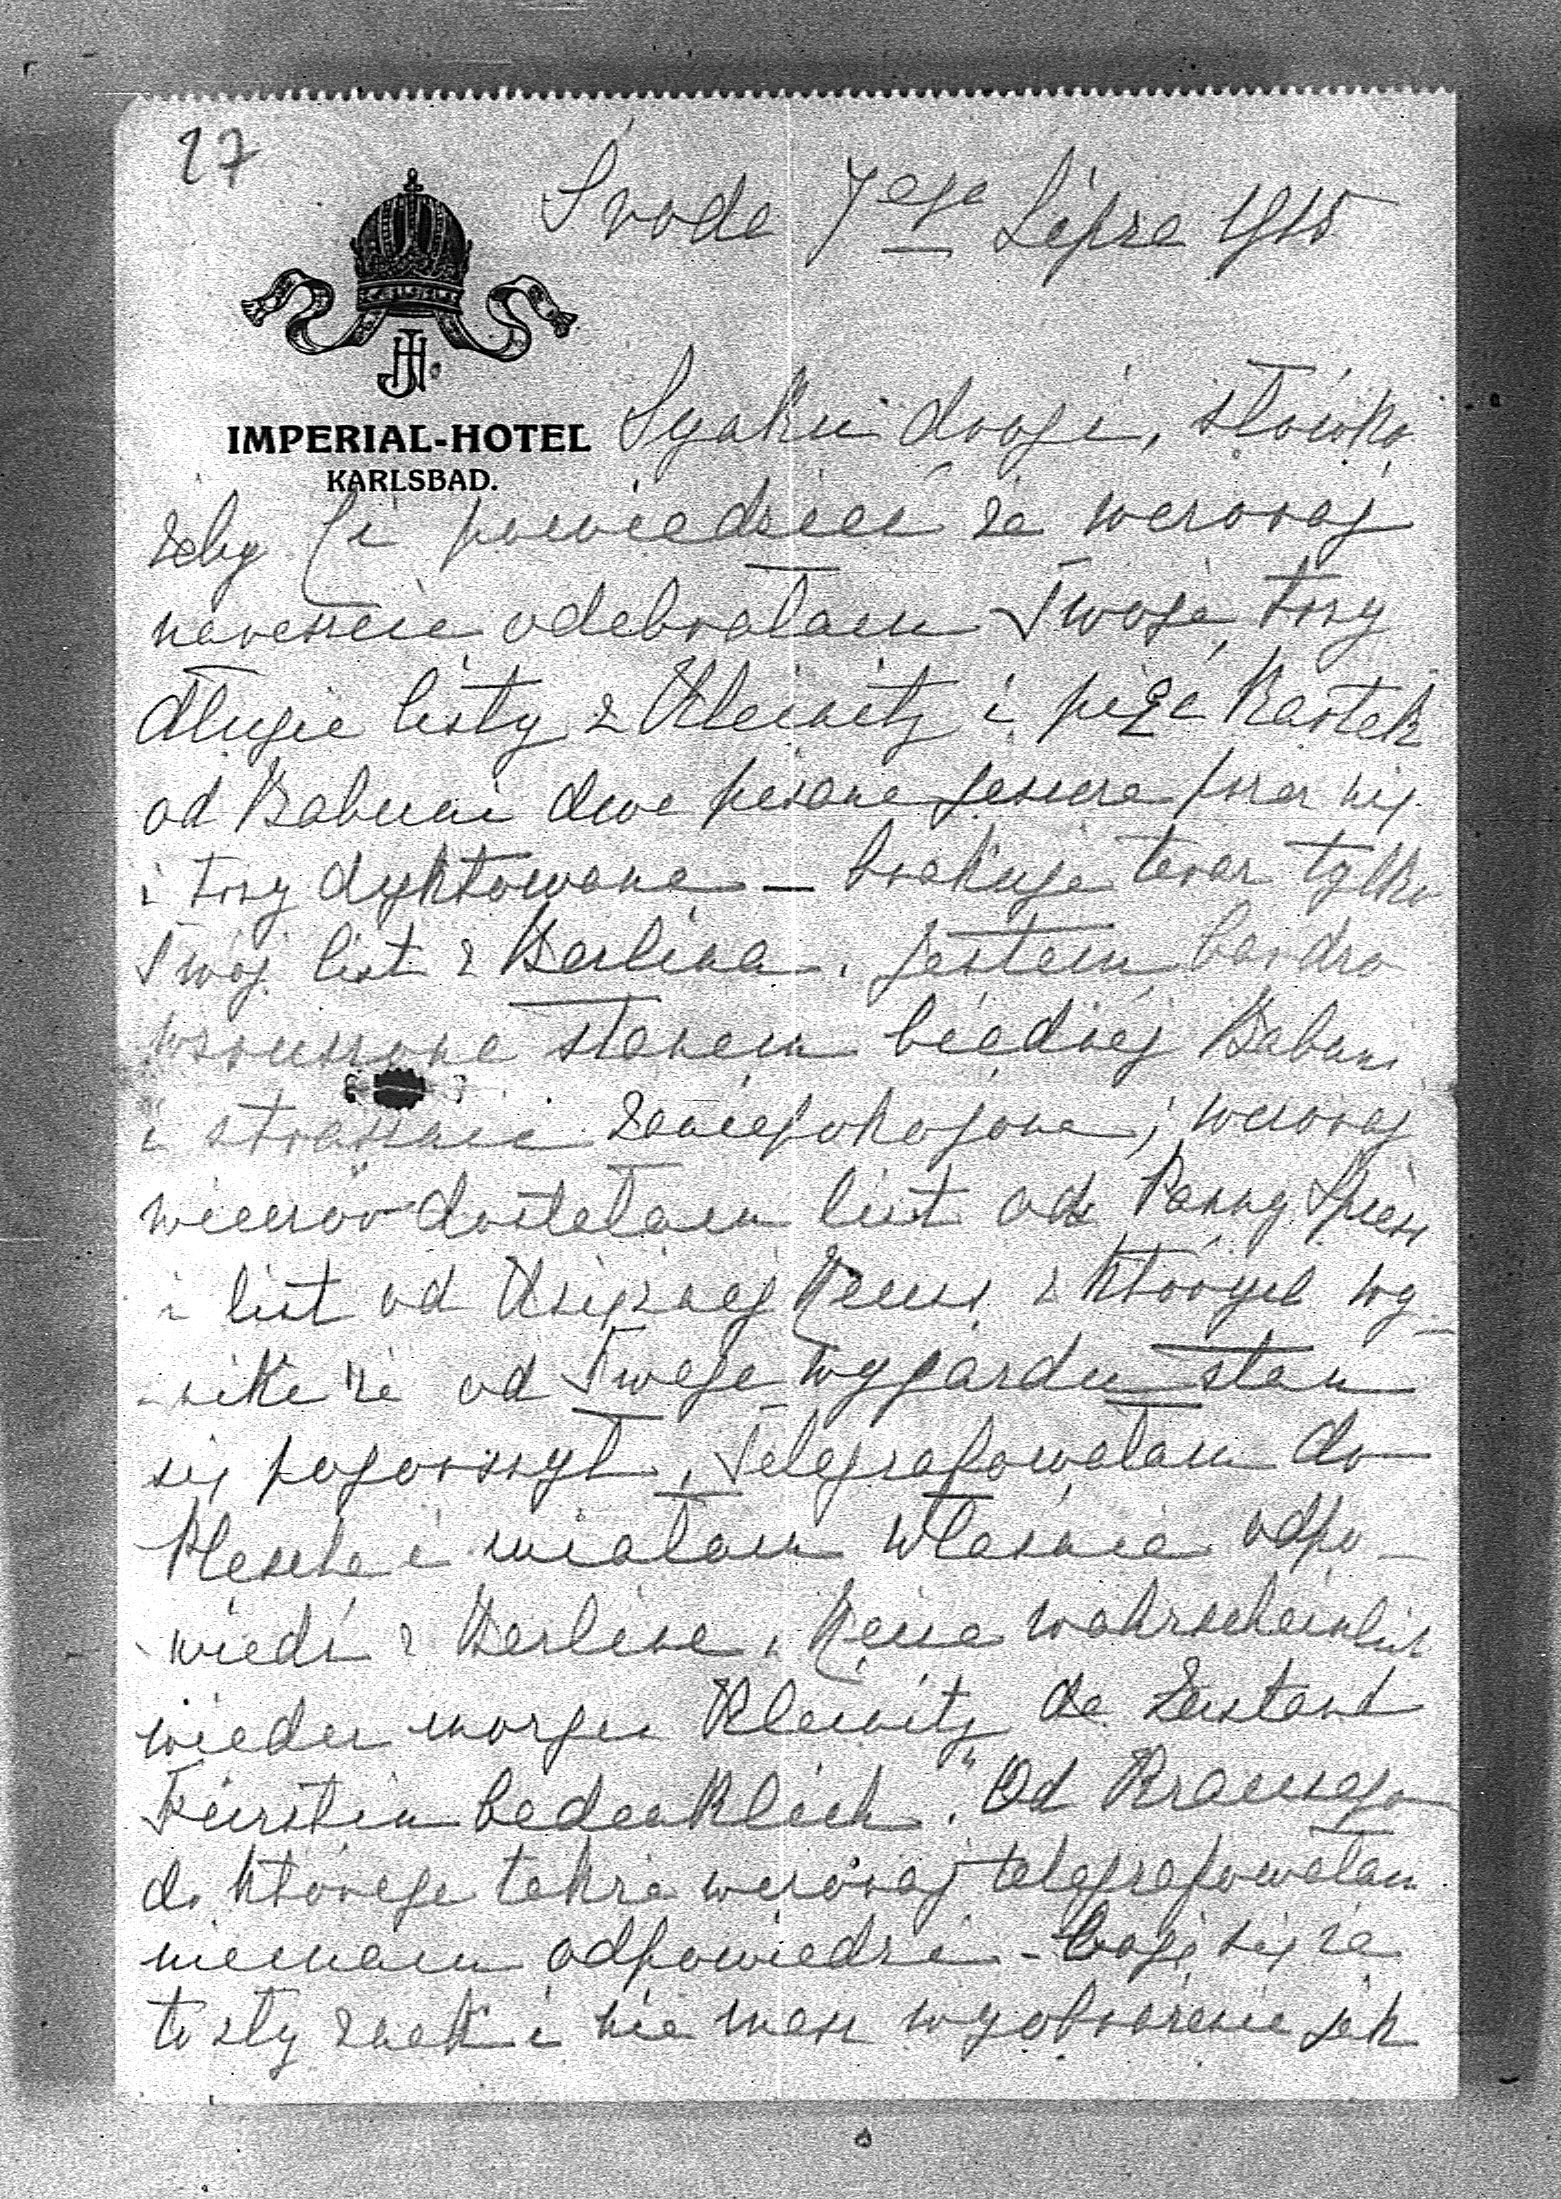 27
Środa 7ego Lipca 1915
IMPERIAL-HOTEL
KARLSBAD.
Synku drogi, słówko
żeby Ci powiedzieć że wczoraj
nareszcie odebrałam Twoje trzy
długie listy z Kleinitz i pięć kartek
od Babuni dwe pisane jeszcze przez nią
i trzy dyktowane — brakuje teraz tylko
Twój list z Berlina. Jestem bardzo
wzruszona stanem biednej Babuni
i strasznie zaniepokojona; wczoraj
wieczór dostałam list od Panny Spiess
i list od Księżnej z których wy-
-nika że od Twego wyjazdu stan
się pogorszył. Telegrafowałam do
i miałam właśnie odpo-
-wiedź z Berlina, wahrscheinlich
wieder morgen Kleinitz da Zustand
Fürstin bedenklich". Od Krausego
do którego także wczoraj telegrafowałam
niemam odpowiedzi - boję się że
to zły znak i nie masz wyobrażenie jak